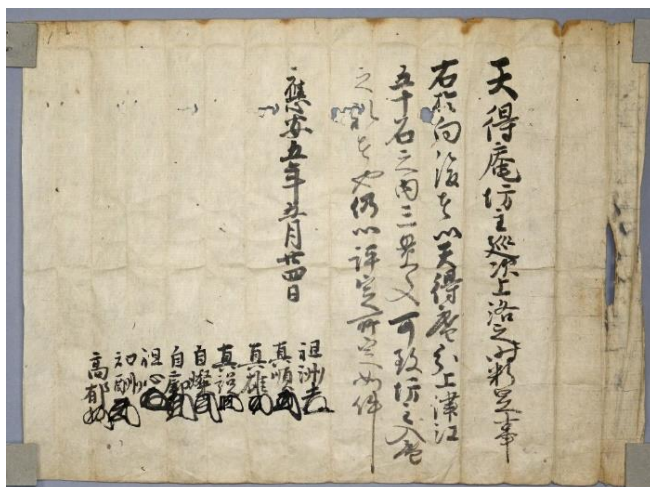 天得庵坊主巡次上洛之時粮足事
右於向後者以天得庵分上津江
五十石之内三
可致坊主入庵
之礼者也仍以評定所定如件
應安五年五月廿四日
祖
真順
真雄
真
自
自
祖心
知
高都